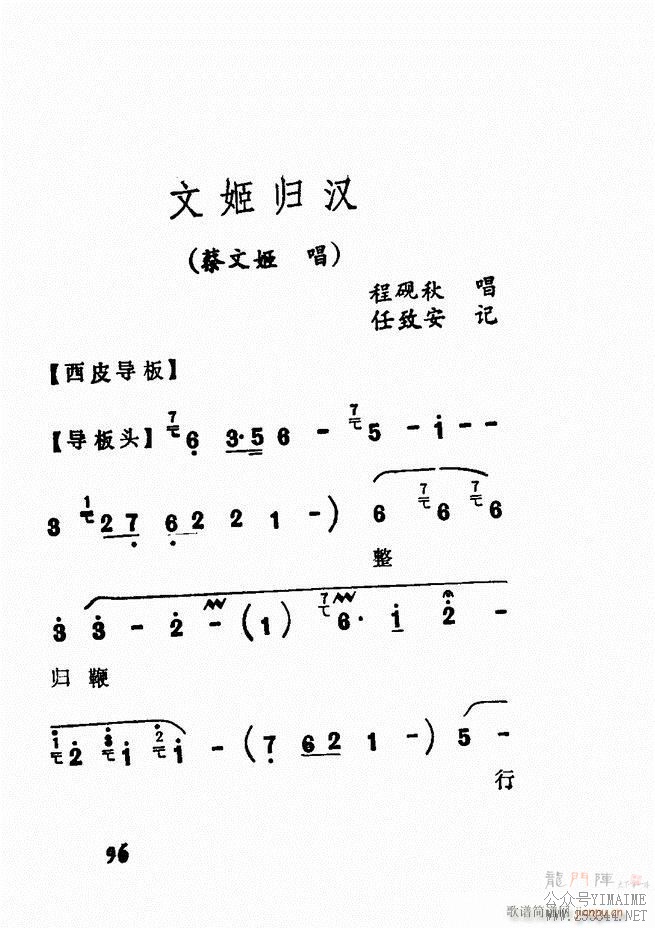 文姬归汉
(蔡文姬 唱)
程砚秋 唱
任致安 记
【西皮导板】
【导板头】 7 6 3·5 6 - 7 5 - i - -
3 1 2 7 6 2 2 1 -) 6 7 6 7 6
整
3 3 - 2 - (1) 7 6· i 2 -
归 鞭
1 2 3 i 2 i - (7 6 2 1 -) 5 -
行
96
龍門陣
公众号YIMAIME
歌谱简谱网
www.293344.NET